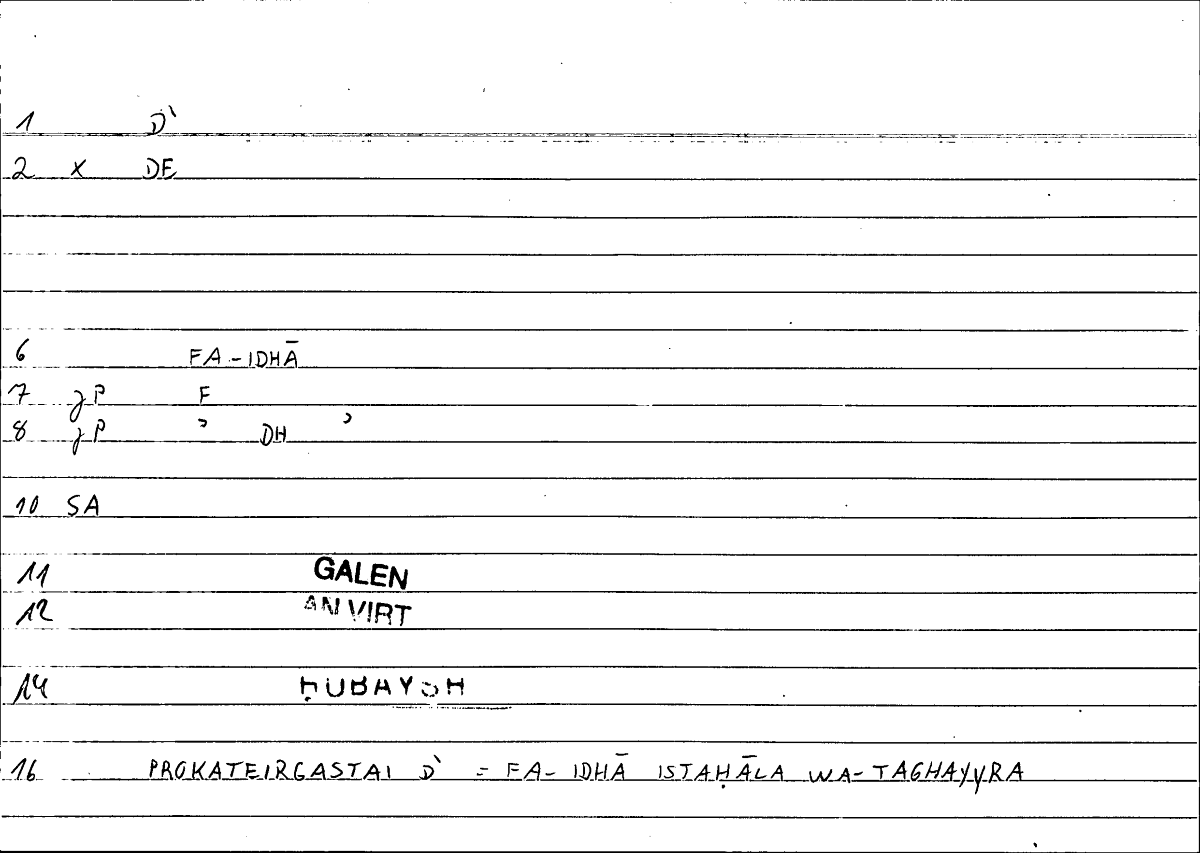 1 D̀
2 X DE
6 FA-IDHĀ
7 P F
8 P ʾ DH ʾ
10 SA
11 GALEN
12 AN VIRT
14 ḤUBAYSH
16 PROKATEIRGASTAI D̀ = FA-IDHĀ ISTAḤĀLA WA-TAGHAYYRA